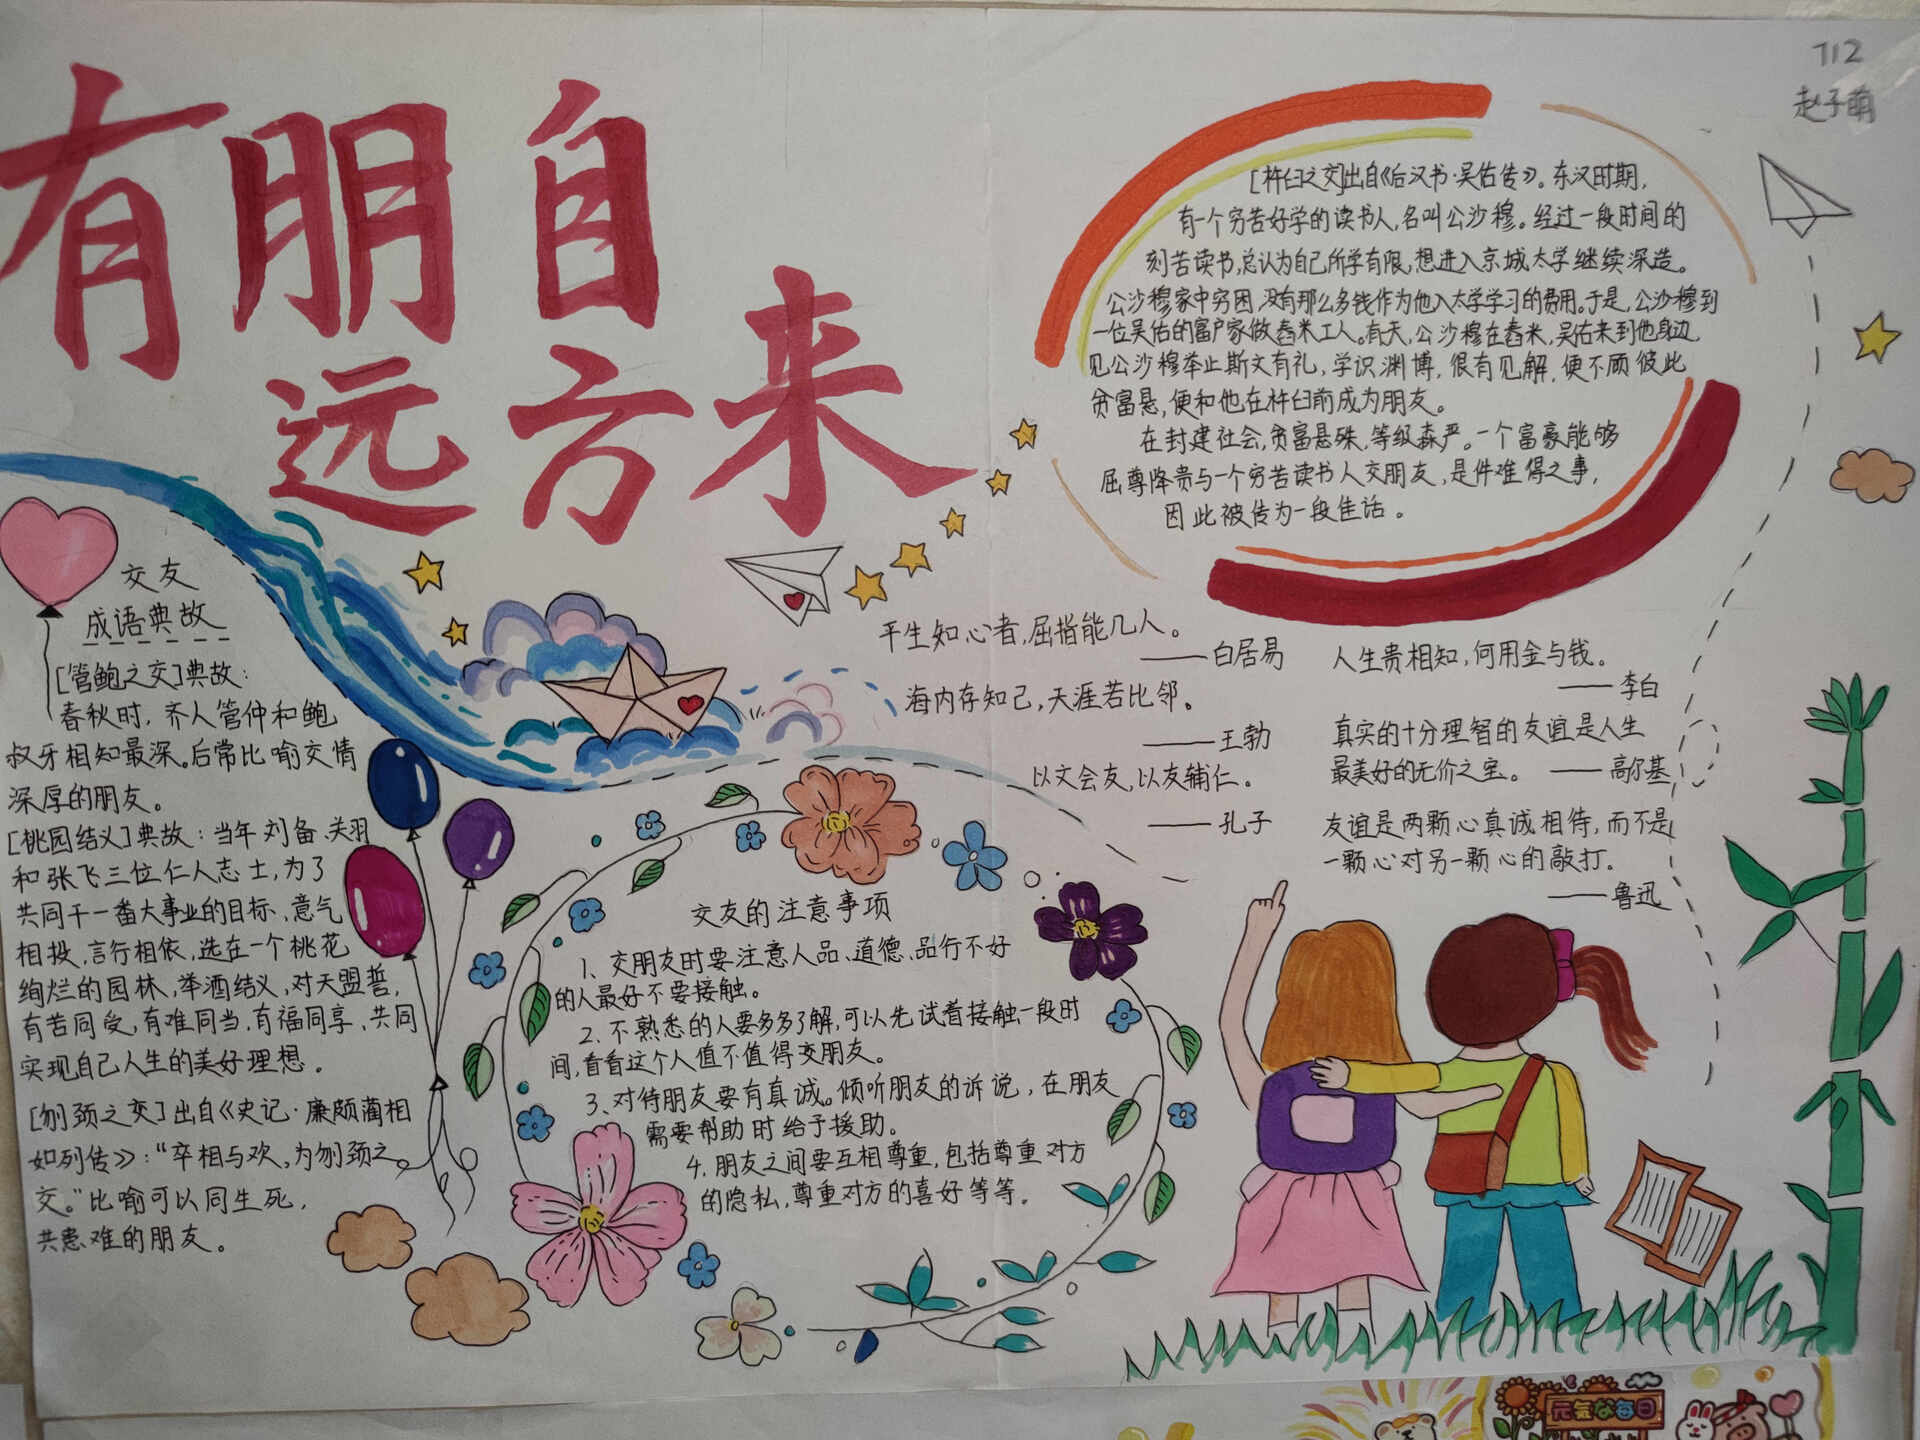 有朋自
远方来
712
赵子萌
交友
成语典故
[管鲍之交]典故:
春秋时,齐人管仲和鲍
叔牙相知最深。后常比喻交情
深厚的朋友。
[桃园结义]典故:当年刘备、关羽
和张飞三位仁人志士,为了
共同干一番大事业的目标,意气
相投,言行相依,选在一个桃花
绚烂的园林,举酒结义,对天盟誓,
有苦同受,有难同当,有福同享,共同
实现自己人生的美好理想。
[刎颈之交]出自《史记·廉颇蔺相
如列传》:“卒相与欢,为刎颈之
交。”比喻可以同生死,
共患难的朋友。
交友的注意事项
1、交朋友时要注意人品、道德、品行不好
的人最好不要接触。
2、不熟悉的人要多多了解,可以先试着接触一段时
间,看看这个人值不值得交朋友。
3、对待朋友要有真诚。倾听朋友的诉说,在朋友
需要帮助时给予援助。
4、朋友之间要互相尊重,包括尊重对方
的隐私,尊重对方的喜好等等。
[杵臼之交]出自《后汉书·吴佑传》。东汉时期,
有一个穷苦好学的读书人,名叫公沙穆。经过一段时间的
刻苦读书,总认为自己所学有限,想进入京城大学继续深造。
公沙穆家中穷困,没有那么多钱作为他入大学学习的费用。于是,公沙穆到
一位吴佑的富户家做舂米工人。有天,公沙穆在舂米,吴佑来到他身边,
见公沙穆举止斯文有礼,学识渊博,很有见解,便不顾彼此
贫富悬,便和他在杵臼前成为朋友。
在封建社会,贫富悬殊,等级森严。一个富豪能够
屈尊降贵与一个穷苦读书人交朋友,是件难得之事,
因此被传为一段佳话。
平生知心者,屈指能几人。
——白居易
海内存知己,天涯若比邻。
——王勃
以文会友,以友辅仁。
——孔子
人生贵相知,何用金与钱。
——李白
真实的十分理智的友谊是人生
最美好的无价之宝。——高尔基
友谊是两颗心真诚相待,而不是
一颗心对另一颗心的敲打.
——鲁迅
元気な每日